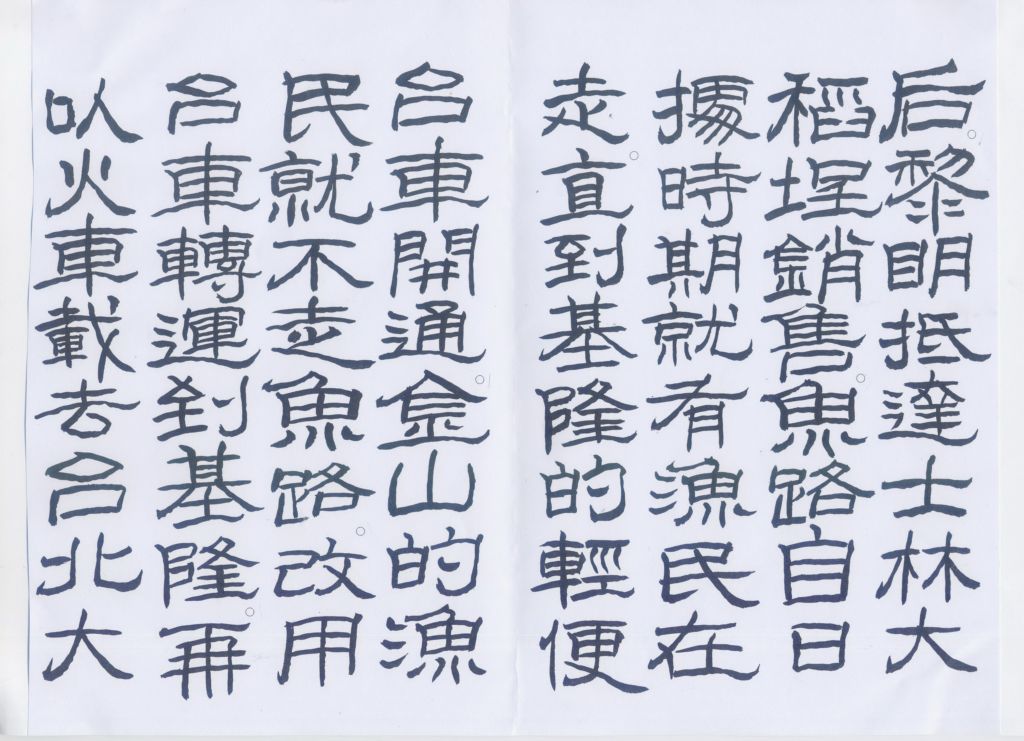 后。黎明抵達士林大
稻埕銷售。魚路自日
據時期就有漁民在
走。直到基隆的輕便
台車開通。金山的漁
民就不走魚路。改用
台車轉運到基隆。再
以火車載去台北大